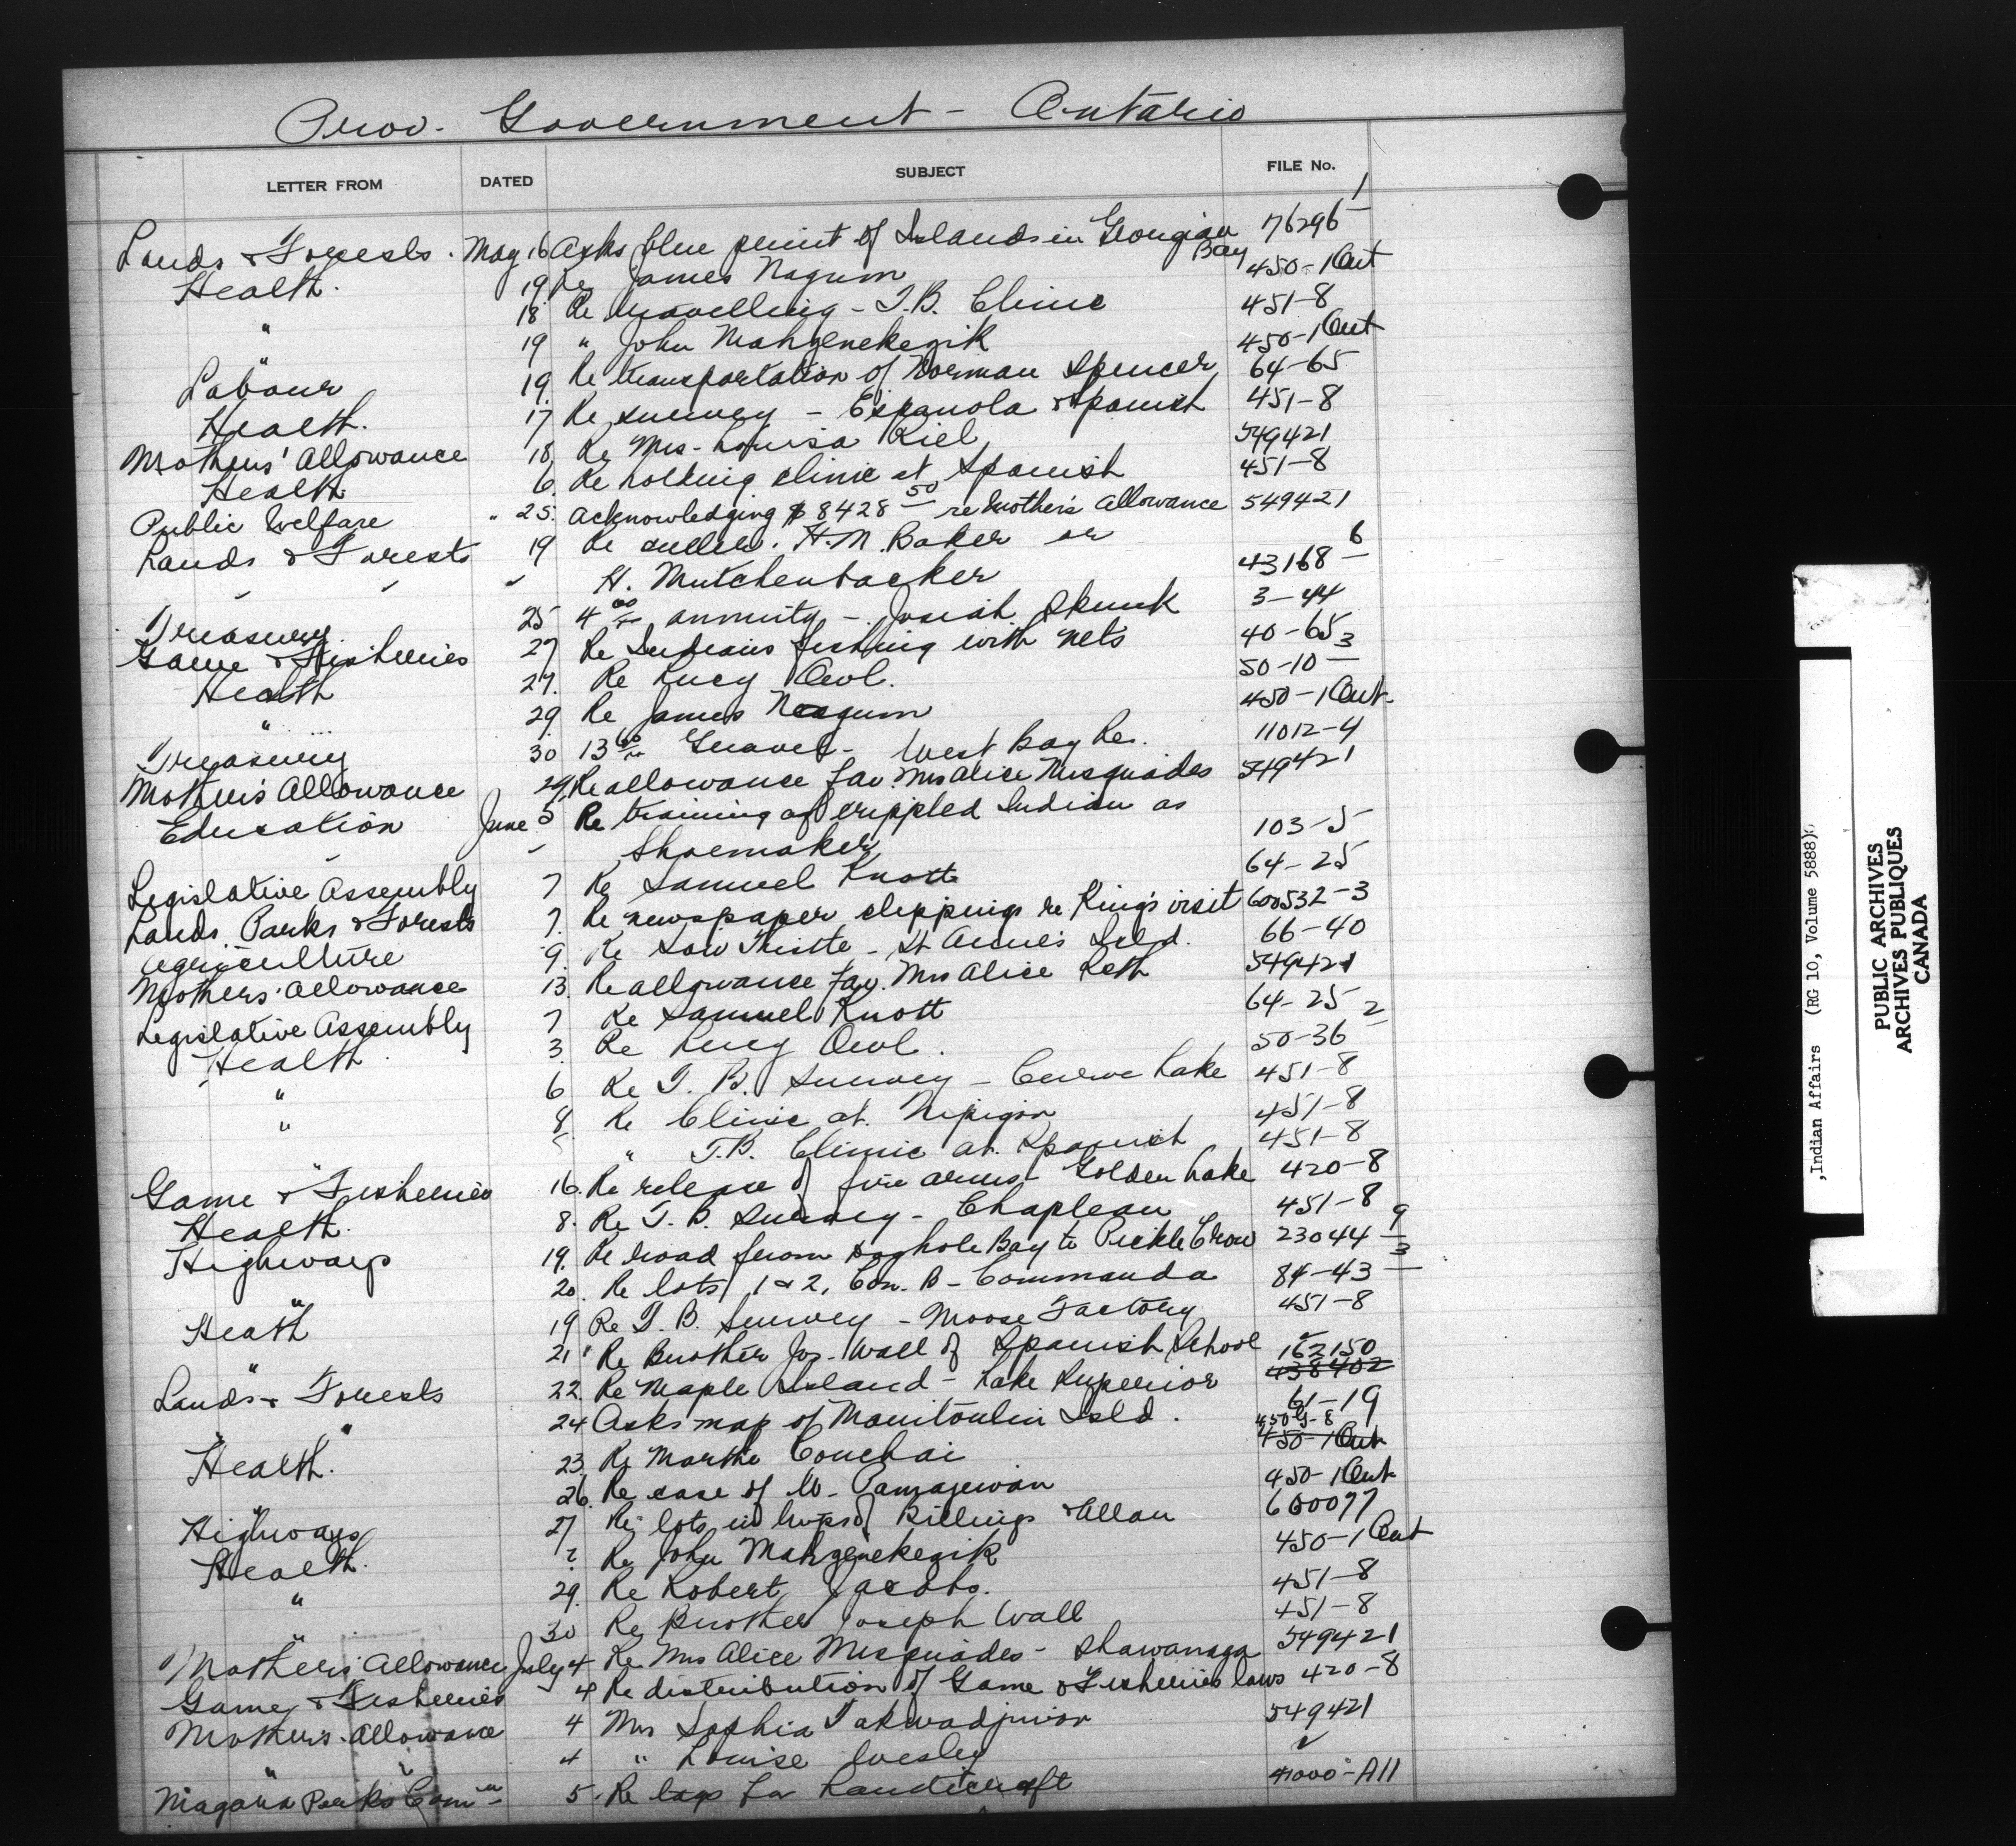 Prov. Government - Ontario
LETTER FROM DATED SUBJECT FILE No.
Lands & Forests. May 16 Asks blue print of Islands in Georgian Bay 76296-1
Health. 19 Re James Nagum 450-1 Ont
" 18 Re travelling - T.B. Clinic 451-8
" 19 " John Mahgenekegik 450-1 Ont
Labour 19. Re transportation of Norman Spencer 64-65
Health. 17 Re survey - Espanola & Spanish 451-8
Mothers' Allowance 18 Re Mrs. Louisa Riel 549421
Health 6. Re holding clinic at Spanish 451-8
Public Welfare " 25. Acknowledging $8428 50 re Mother's Allowance 549421
Lands & Forests 19 Re H.M. Baker or
H. Mutchenbacker 43168-6
Treasury 25 4 00 annuity - Josiah Skunk 3-44
Game & Fisheries 27 Re Indians fishing with nets 40-65
Health 27. Re Lucy Owl. 50-10-3
" 29 Re James Nagum 450-1 Ont.
Treasury 30 13 Gravel - West Bay Res. 11012-4
Mother's Allowance 29 Re allowance fav. Mrs Alice Misquades 549421
Education June 5 Re training of crippled Indian as
Shoemaker 103-5
Legislative Assembly 7 Re Samuel Knott 64-25
Lands Parks & Forests 7. Re newspaper clippings re King's visit 600532-3
Agriculture 9. Re Sow Thistle - St Anne's Isld. 66-40
Mothers' Allowance 13. Re allowance fav. Mrs Alice 549421
Legislative Assembly 7 Re Samuel Knott 64-25
Health 3. Re Lucy Owl. 50-36-2
" 6 Re T. B. Survey - Curve Lake 451-8
" 8 Re Clinic at Nipigon 451-8
" " T.B. Clinic at Spanish 451-8
Game & Fisheries 16. Re release of fire arms - Golden Lake 420-8
Health. 8. Re T. B. Survey - Chapleau 451-8
Highways 19. Re road from Doghole Bay to Pickle Crow 23044-9
" 20. Re lots 1 & 2, Con. B - Commanda 84-43-3
Heath 19 Re T. B. Survey - Moose Factory 451-8
" 21 Re Brother Jos. Wall of Spanish School 162150
438402
Lands & Forests 22. Re Maple Island - Lake Superior 61-19
" 24 Asks map of Manitoulin Isld. 450-1 Ont
Health. 23. Re Martha Couchai
" 26. Re case of W. Pamajewan 450-1 Ont
Highways 27 Re lots in twps of Billings & Allan 600077
Health. ? Re John Mahgenekegik 450-1 Ont
" 29. Re Robert Jacobs. 451-8
" 30 Re Brother Joseph Wall 451-8
Mothers' Allowance July 4 Re Mrs Alice Misquades - Shawanaga 549421
Game & Fisheries 4 Re distribution of Game & Fisheries laws 420-8
Mothers' Allowance 4 Mrs Sophia 549421
" 4 " Louise Wesley "
Niagara Parks Com'n 5. Re tags for handicraft 41000-A11
,Indian Affairs (RG 10, Volume 5888)
PUBLIC ARCHIVES
ARCHIVES PUBLIQUES
CANADA